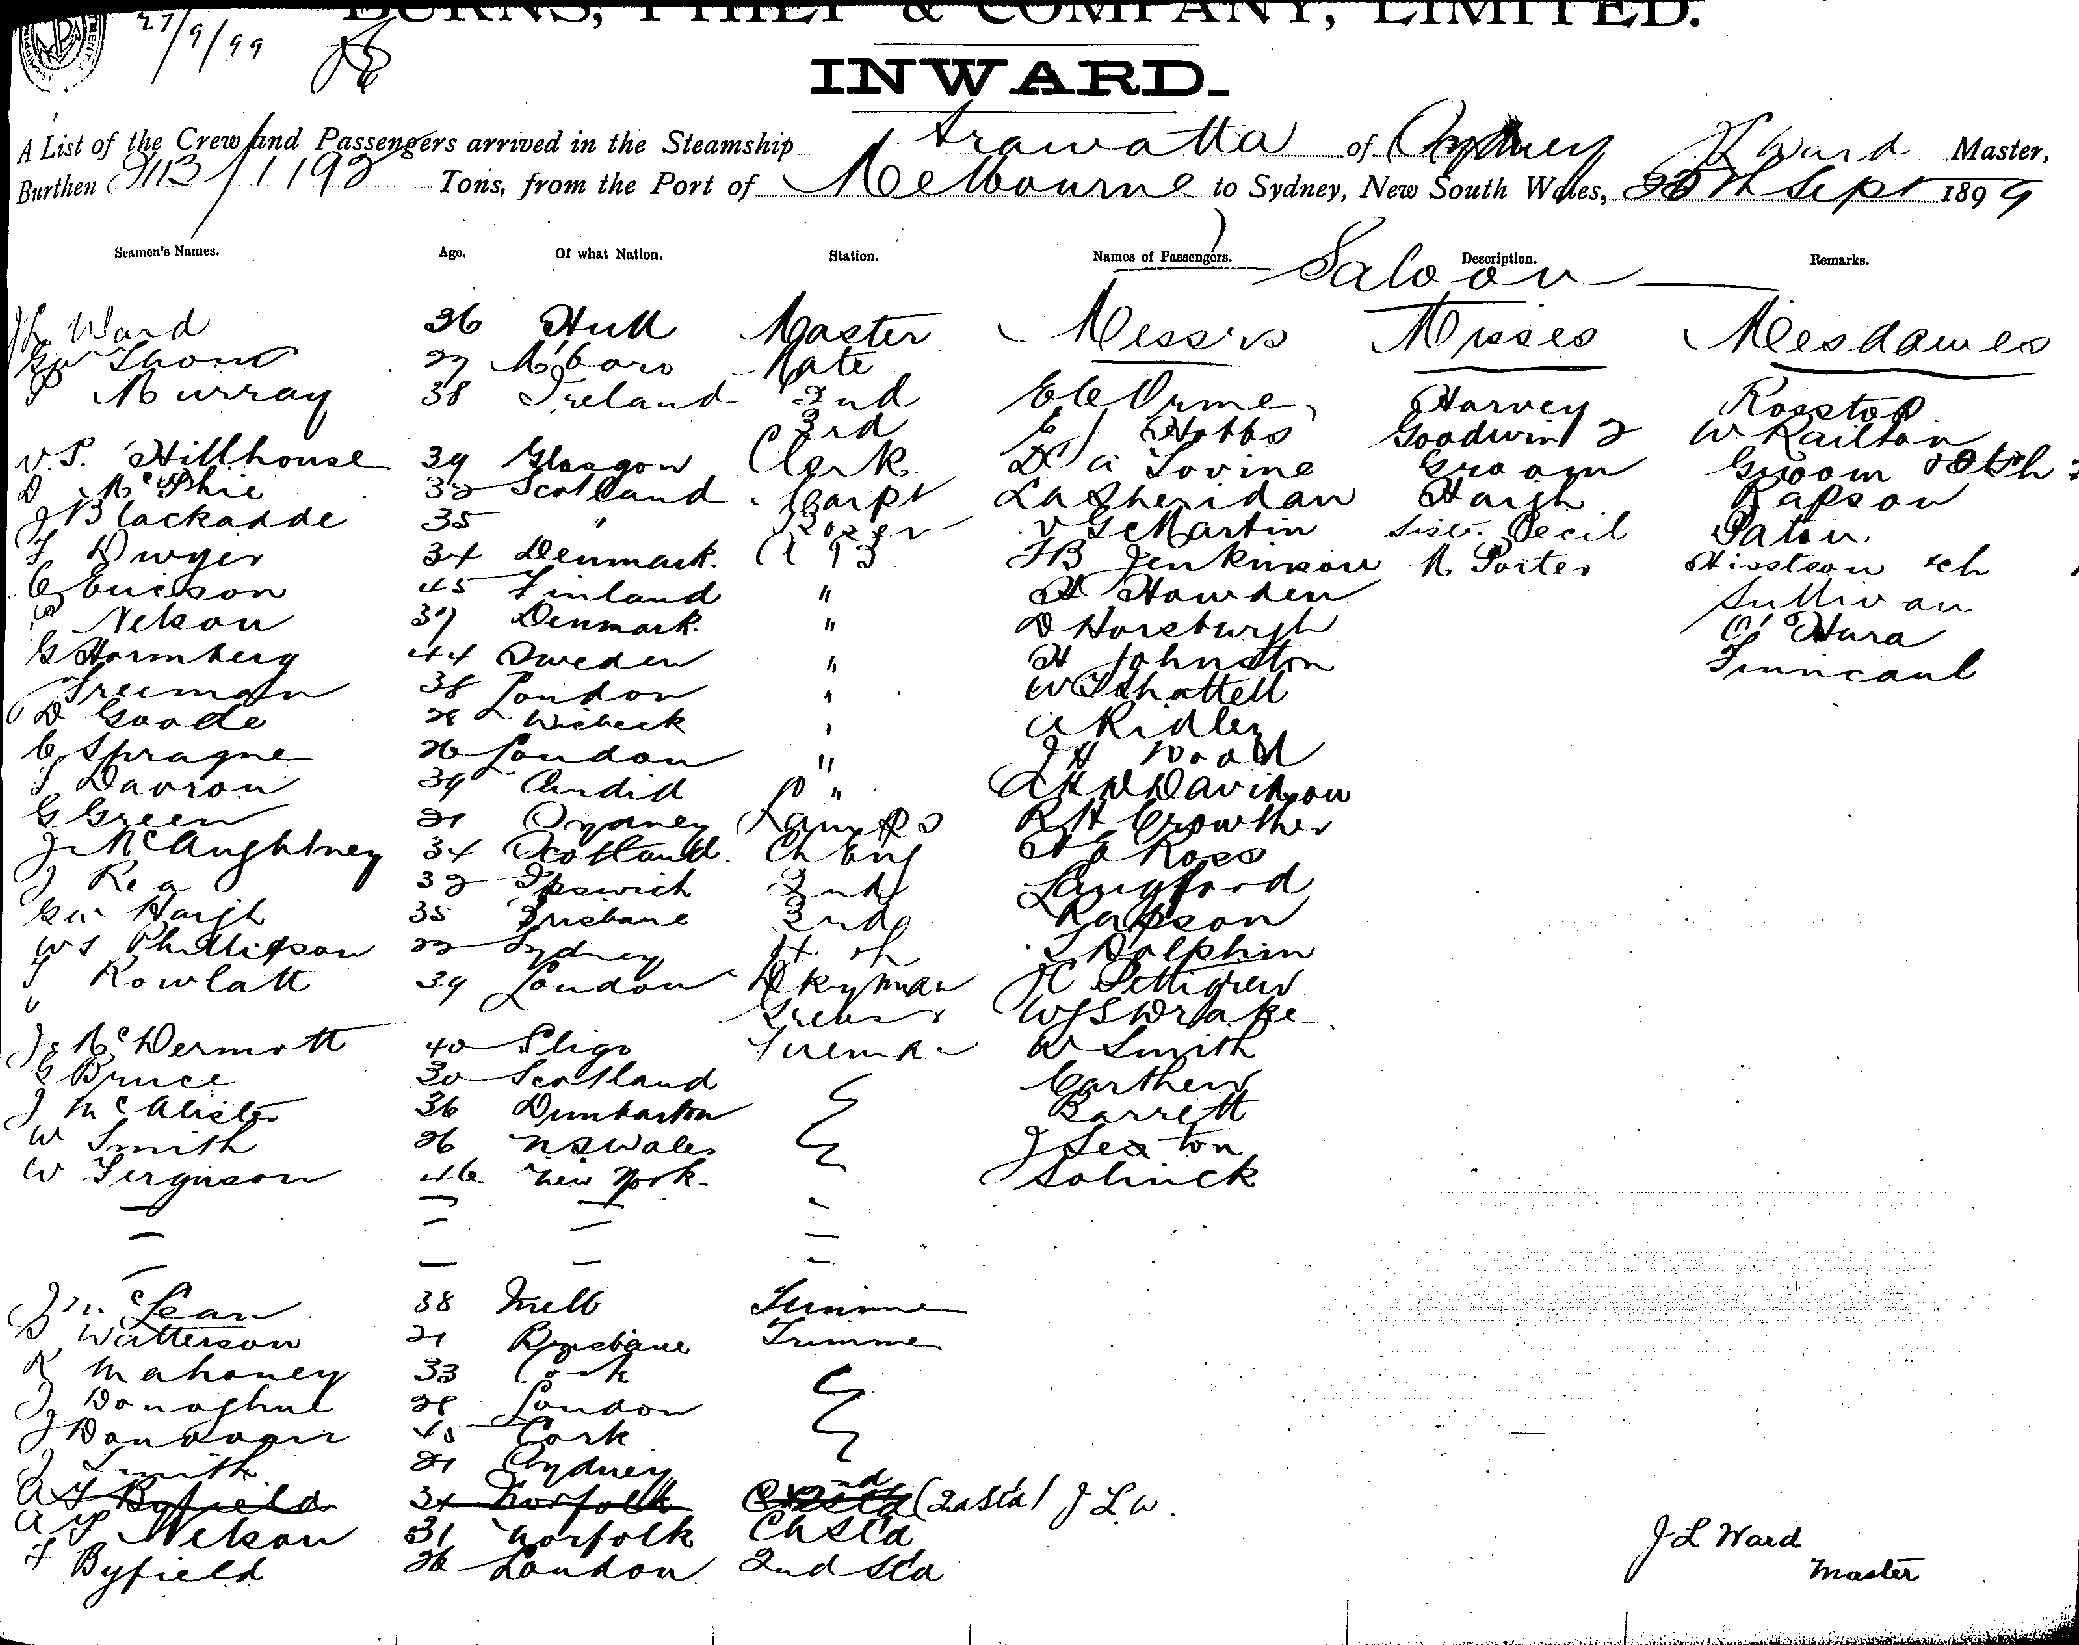 27/9/99
BURNS, PHILP & COMPANY, LIMITED.
INWARD.
A List of the Crew and Passengers arrived in the Steamship Arawatta of Sydney J L Ward Master,
Burthen 2113/1192 Tons, from the Port of Melbourne to Sydney, New South Wales, Sept 1899
Seamen's Names. Age. Of what Nation. Station. Names of Passengers. Description. Remarks.
Saloon
J L Ward 36 Hull Master Messrs Misses Mesdames
27 M'boro Mate
Murray 38 Ireland 2nd Orme Harvey
3rd Hobbs Goodwin 2 W Railton
V. S. Hillhouse 39 Glasgow Clerk D A Lovine Groom Groom
D McPhie 32 Scotland Carpt L A Sheridan Haigh Rapson
J Blackadde 35 " V G McMartin Cecil Paton
Dwyer 34 Denmark. A B F B Jenkinson M Porter ch
C Ericson 45 Finland " H Howden Sullivan
Nelson 37 Denmark. " D Horsburgh O'Hara
G Hormberg 44 Sweden " H Johnston Finncaul
Freeman 38 London " W Shattell
D Goode 28 Wisbeck " A Ridley
C Sprague 26 London " J H Wood
Davron 39 Candid " Davidson
G Green 21 Sydney Lamps R H Crowther
J McAughtney 34 Scotland. Ch Eng Ross
J Rea 32 Ipswich 2nd Langford
G W Haigh 35 Brisbane 3rd Rapson
W S Phillipson 22 Sydney 4th Dolphin
Rowlatt 39 London Dkyman Pettigrew
" Greaser W J S Drake
Jas McDermott 40 Sligo Fireman W Smith
Bruce 30 Scotland Carthew
J McAlister 36 Dumbarton Barrett
W Smith 26 N S Wales J Sexton
W Ferguson 46 New York. Solinck
J McLean 38 Melb Trimme
Watterson 21 Brisbane Trimme
R Mahoney 33 Cork
J Donoghue 28 London
J Donovan 45 Cork
J Smith 21 Sydney
Byfield 31 Norfolk (2nd Std) J L W.
Nelson 31 Norfolk Ch Std
F Byfield 26 London 2nd Std
J L Ward
Master